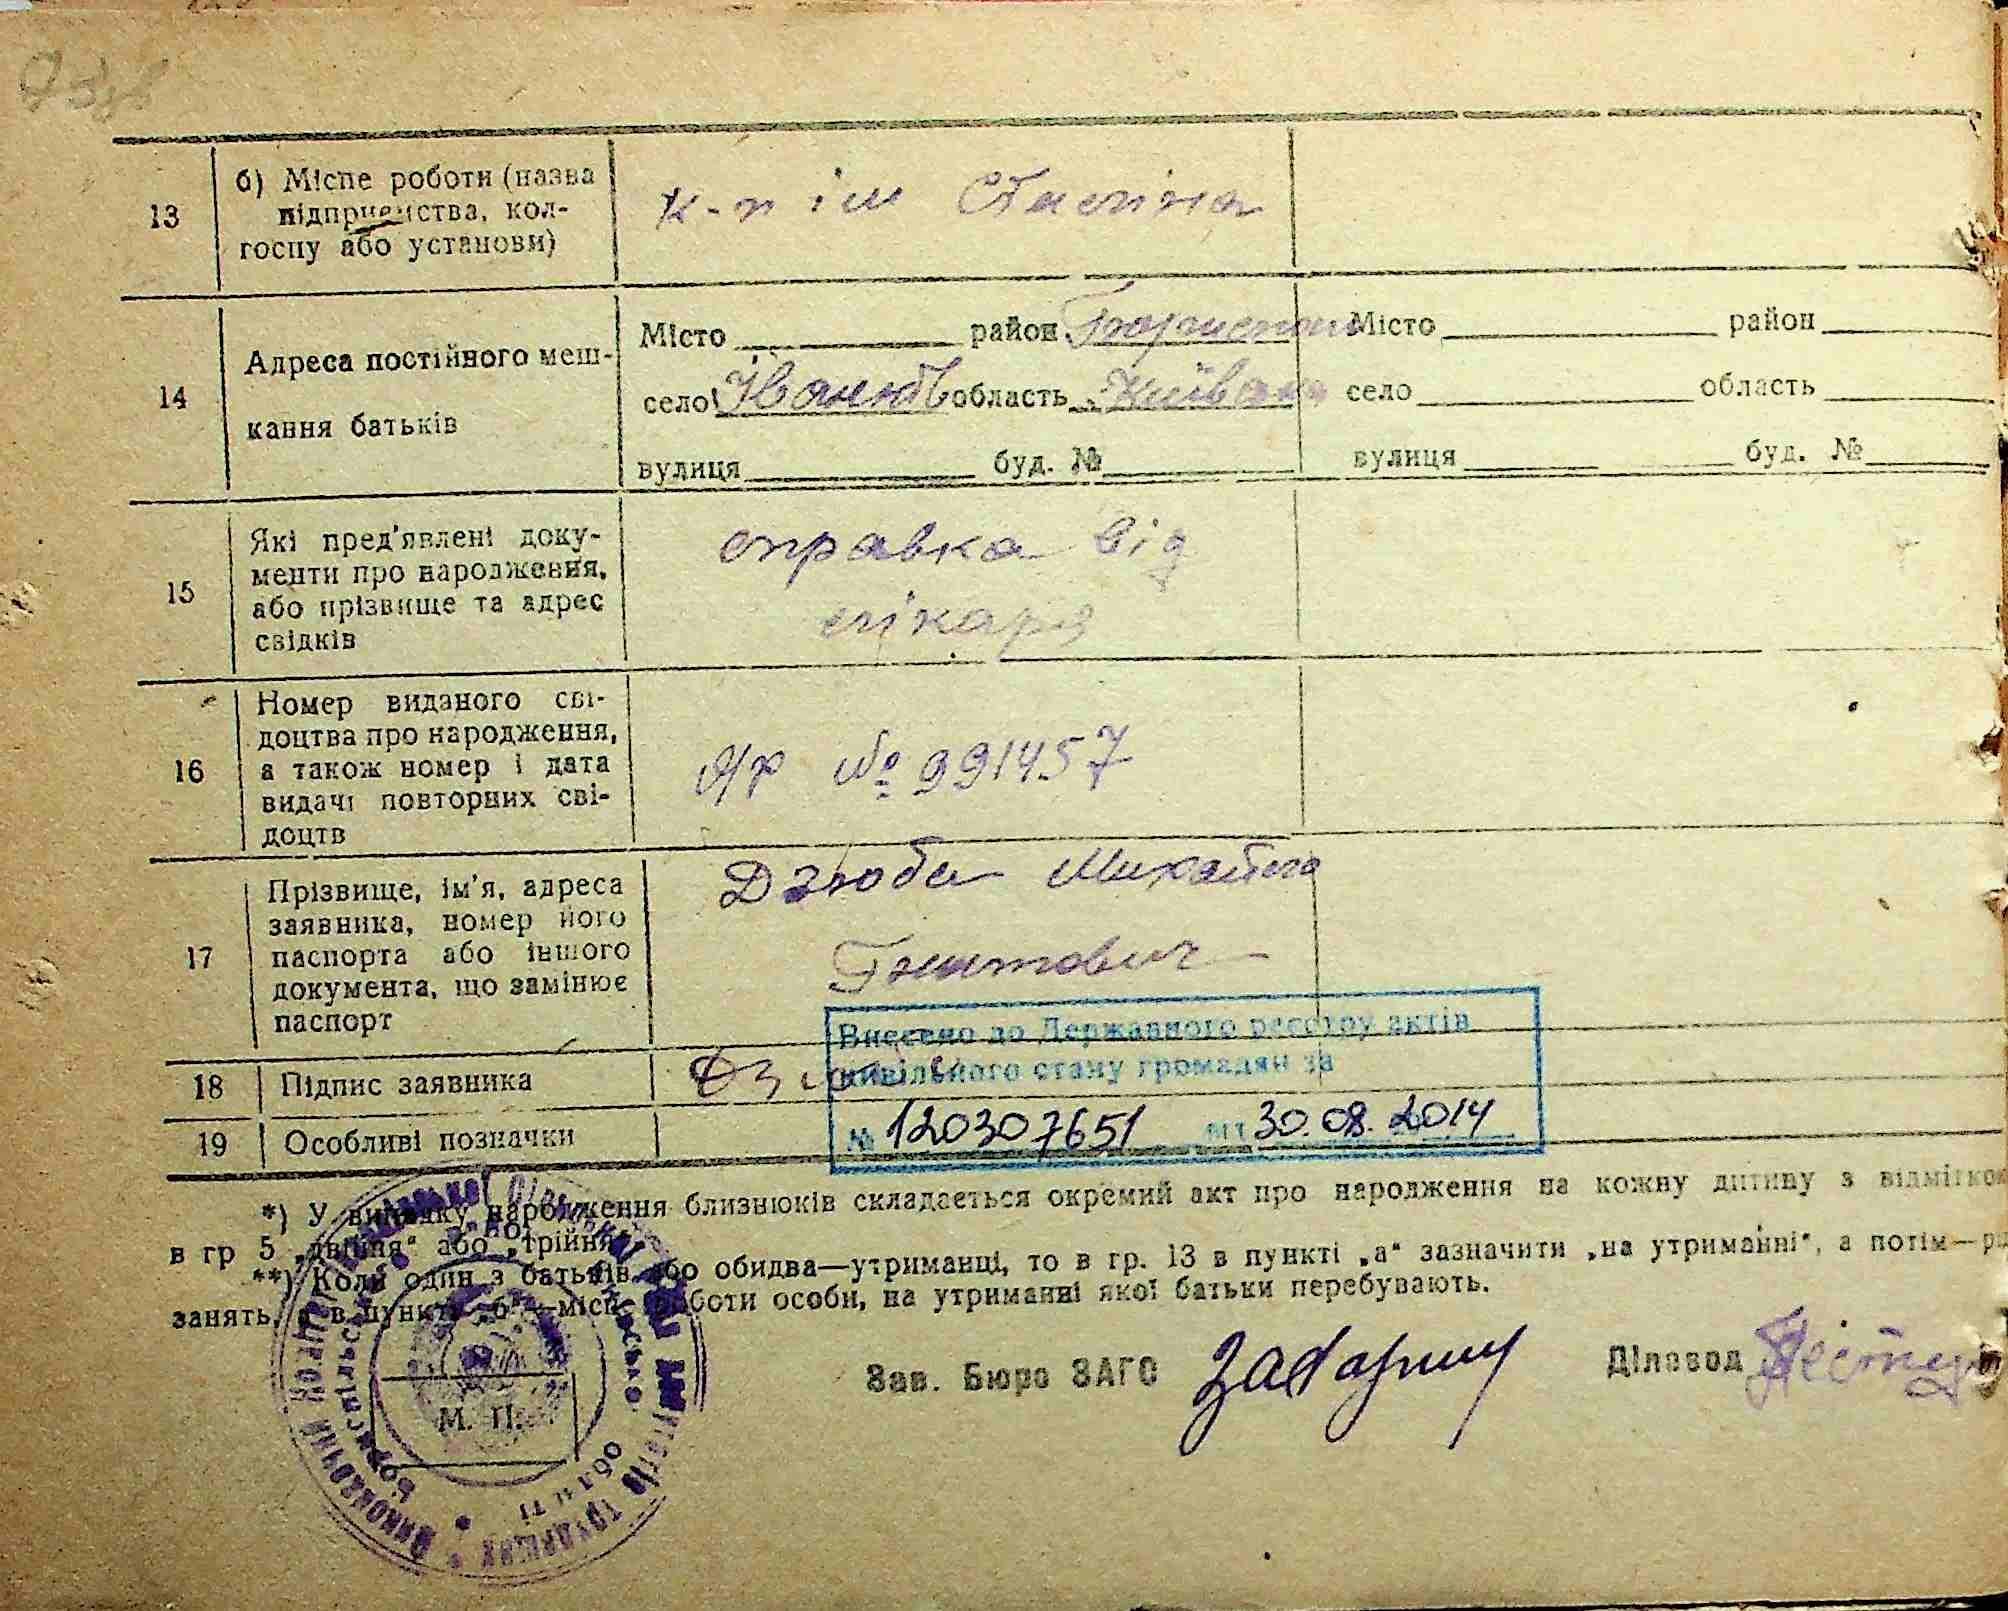 13
б) Місце роботи (назва
підприємства, кол-
госпу або установи)
к-п ім Сталіна
14
Адреса постійного меш-
кання батьків
Місто район
село область Київська
вулиця буд. №
Місто район
село область
вулиця буд. №
15
Які пред'явлені доку-
менти про народження,
або прізвище та адрес
свідків
справка від
лікаря
16
Номер виданого сві-
доцтва про народження,
а також номер і дата
видачі повторних сві-
доцтв
№ 991457
17
Прізвище, ім'я, адреса
заявника, номер його
паспорта або іншого
документа, що замінює
паспорт
Дзюба Михайло
18
Підпис заявника
Внесено до Державного реєстру актів
цивільного стану громадян за
№ 120307651 від 30.08.2014
19
Особливі позначки
*) У випадку народження близнюків складається окремий акт про народження на кожну дитину з відміткою
в гр 5 „двійня“ або „трійня“
**) Коли один з батьків або обидва—утриманці, то в гр. 13 в пункті „а“ зазначити „на утриманні“, а потім—
занять, а в пункті „б“—місце роботи особи, на утриманні якої батьки перебувають.
М. П.
Зав. Бюро ЗАГС
Діловод